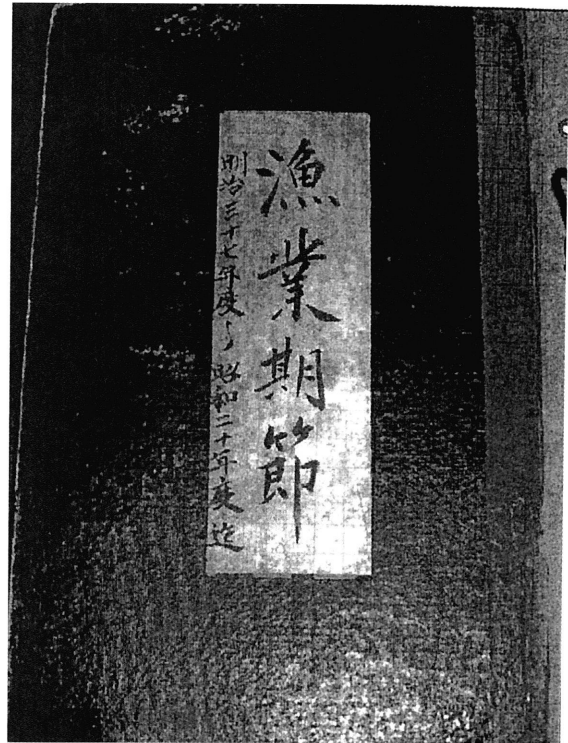 漁業期節
明治三十七年度ゟ昭和二十年度迄